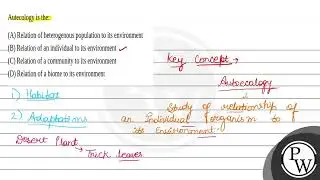 Autecology is the:
(A) Relation of heterogenous population to its environment
(B) Relation of an individual to its environment
(C) Relation of a community to its environment
(D) Relation of a biome to its environment
Key Concept
Autoecology
1) Habitat
Study of relationship of
2) Adaptations
an Individual organism to
its Environment
Desert Plant
Thick leaves
PW